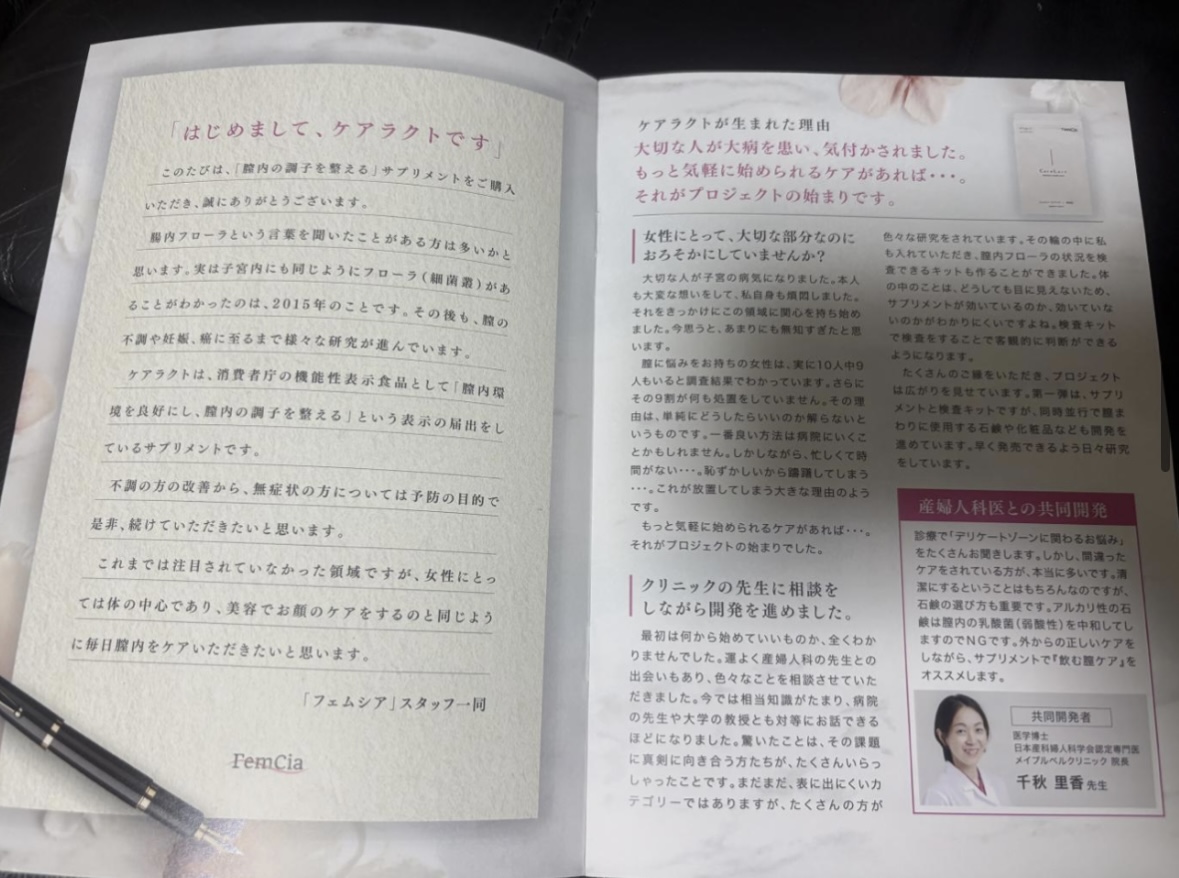 「はじめまして、ケアラクトです」
このたびは、「膣内の調子を整える」サプリメントをご購入
いただき、誠にありがとうございます。
腸内フローラという言葉を聞いたことがある方は多いかと
思います。実は子宮内にも同じようにフローラ(細菌叢)があ
ることがわかったのは、2015年のことです。その後も、膣の
不調や妊娠、癌に至るまで様々な研究が進んでいます。
ケアラクトは、消費者庁の機能性表示食品として「膣内環
境を良好にし、膣内の調子を整える」という表示の届出をし
ているサプリメントです。
不調の方の改善から、無症状の方については予防の目的で
是非、続けていただきたいと思います。
これまでは注目されていなかった領域ですが、女性にとっ
ては体の中心であり、美容でお顔のケアをするのと同じよう
に毎日膣内をケアいただきたいと思います。
「フェムシア」スタッフ一同
FemCia
ケアラクトが生まれた理由
大切な人が大病を患い、気付かされました。
もっと気軽に始められるケアがあれば・・・。
それがプロジェクトの始まりです。
CareLact
女性にとって、大切な部分なのに
おろそかにしていませんか?
大切な人が子宮の病気になりました。本人
も大変な想いをして、私自身も煩悶しました。
それをきっかけにこの領域に関心を持ち始め
ました。今思うと、あまりにも無知すぎたと思
います。
膣に悩みをお持ちの女性は、実に10人中9
人もいると調査結果でわかっています。さらに
その9割が何も処置をしていません。その理
由は、単純にどうしたらいいのか解らないと
いうものです。一番良い方法は病院にいくこ
とかもしれません。しかしながら、忙しくて時
間がない・・・。恥ずかしいから躊躇してしまう
・・・。これが放置してしまう大きな理由のよう
です。
もっと気軽に始められるケアがあれば・・・。
それがプロジェクトの始まりでした。
クリニックの先生に相談を
しながら開発を進めました。
最初は何から始めていいものか、全くわか
りませんでした。運よく産婦人科の先生との
出会いもあり、色々なことを相談させていた
だきました。今では相当知識がたまり、病院
の先生や大学の教授とも対等にお話できる
ほどになりました。驚いたことは、その課題
に真剣に向き合う方たちが、たくさんいらっ
しゃったことです。まだまだ、表に出にくいカ
テゴリーではありますが、たくさんの方が
色々な研究をされています。その輪の中に私
も入れていただき、膣内フローラの状況を検
査できるキットも作ることができました。体
の中のことは、どうしても目に見えないため、
サプリメントが効いているのか、効いていな
いのかがわかりにくいですよね。検査キット
で検査をすることで客観的に判断ができる
ようになります。
たくさんのご縁をいただき、プロジェクト
は広がりを見せています。第一弾は、サプリ
メントと検査キットですが、同時並行で膣ま
わりに使用する石鹸や化粧品なども開発を
進めています。早く発売できるよう日々研究
をしています。
産婦人科医との共同開発
診療で「デリケートゾーンに関わるお悩み」
をたくさんお聞きします。しかし、間違った
ケアをされている方が、本当に多いです。清
潔にするということはもちろんなのですが、
石鹸の選び方も重要です。アルカリ性の石
鹸は膣内の乳酸菌(弱酸性)を中和してし
ますのでNGです。外からの正しいケアを
しながら、サプリメントで『飲む膣ケア』を
オススメします。
共同開発者
医学博士
日本産科婦人科学会認定専門医
メイプルベルクリニック 院長
千秋 里香先生